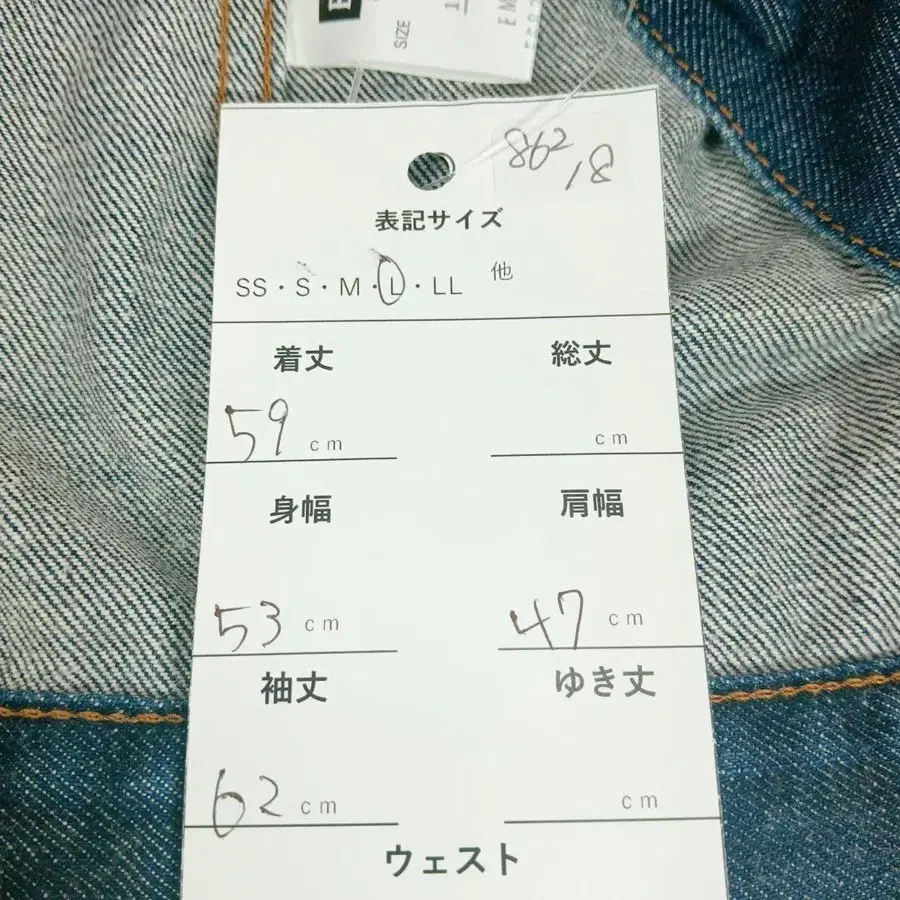 SIZE
862
18
表記サイズ
SS・S・M・L・LL 他
着丈 総丈
59 cm cm
身幅 肩幅
53 cm 47 cm
袖丈 ゆき丈
62 cm cm
ウェスト